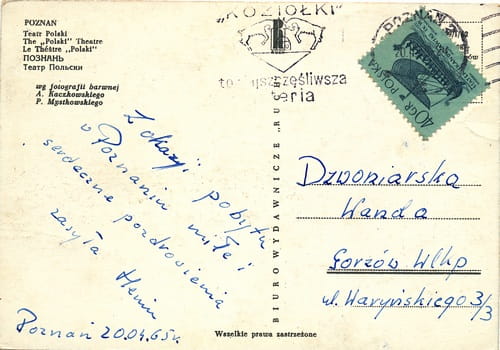 POZNAŃ
Teatr Polski
The „Polski" Theatre
Le Théâtre „Polski"
ПОЗНАНЬ
Театр Польски
wg fotografii barwnej
A. Kaczkowskiego
P. Mystkowskiego
"KOZIOŁKI"
szczęśliwsza
POZNAŃ 2
40 GR
POLSKA
BIURO WYDAWNICZE „RUCH"
Z okazji pobytu
w Poznaniu miłe i
serdeczne pozdrowienia
zasyła
Poznań 20.04.65r.
Dzwoniarska
Wanda
Gorzów Wlkp
ul. Waryńskiego 3/3
Wszelkie prawa zastrzeżone